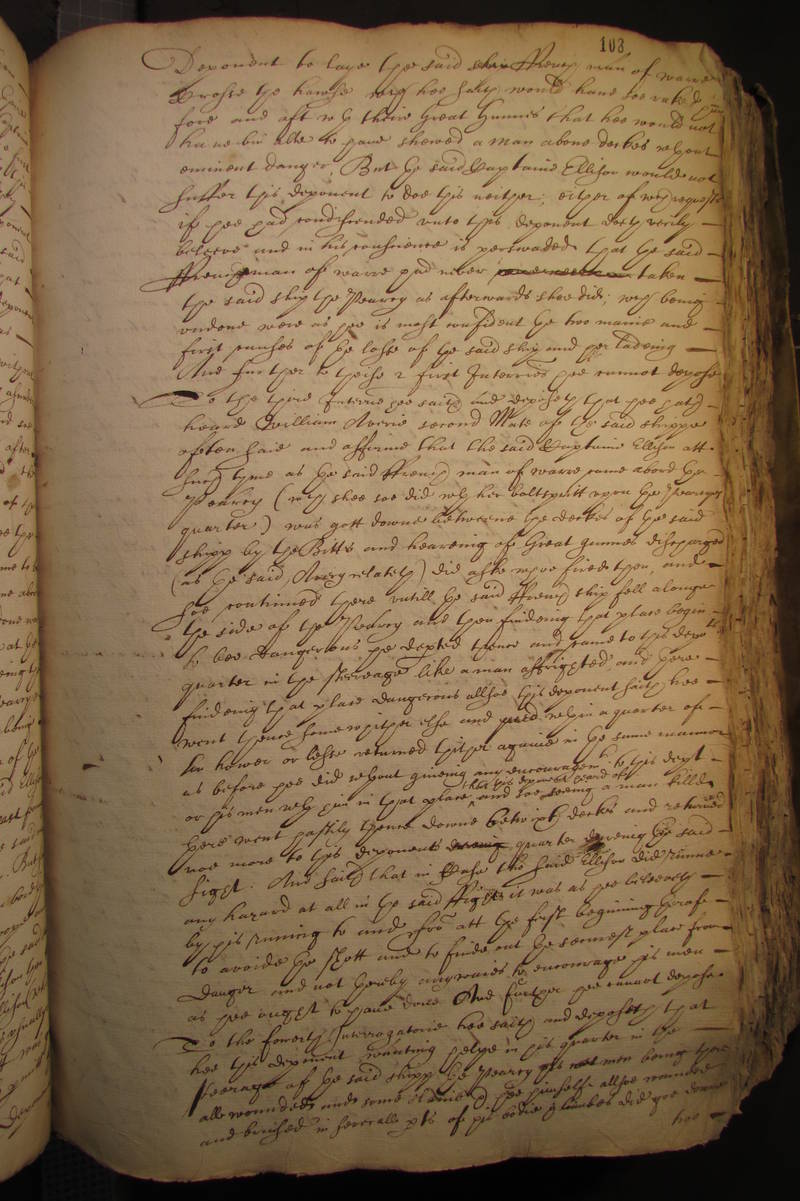 103
Deponent to laye the said French man of warre
Crosse the hawse w:ch hee saith would have soe raked
fore and aft w:th theire great Gunnes that hee would not
have bin able to have shewed a man above deckes w:thout
eminent danger, But the said Captaine Ellison would not
suffer this deponent to doe this neither, either of w:ch requests
if hee had condiscended unto this deponent doth verily
beleeve and in his conscience is perswaded that the said
French man of warre had never taken
the said ship the Pearey as afterwards shee did; w:ch being
undone were as hee is most confident the two maine and
first causes of the losse of the said ship and her ladeing
And further to theise 2 first Interries hee cannot depose
To the third Interrie hee saith and deposeth that hee hath
heard William Averie second Mate of the said shippe
often saie and affirme that the said Captaine Ellison att
such tyme as the said French man of warre came abord the
Pearey (w:ch shee soe did w:th her boltspritt upon the Peareys
quarter) was gott downe betweene the deckes of the said
shipp by the Bitts and heareing of Great gunnes discharged
(as the said Avery relateth) did aske whoe fired them, and
soe continued there untill the said French ship fell alonge
the side of the Pearey and then findeing that place begin
to bee dangerous he dep:ted thence and came to this depo:ts
quarter in the steereage like a man affrighted and there
findeing that place dangerous allsoe this deponent saith hee
went thence somewhither else and w:thin a quarter of
an hower or lesse returned thither againe in the same manner
as before hee did w:thout giveing any encouragem:t to this dep:t
or his men w:th him in that place, and soe seeing a man killd
there went hastily thence downe betwixt deckes and returned
noe more to this deponents quarter dureing the said
fight. And saith that in Case the said Ellison did runne
any hazard at all in the said Fight it was as hee beleeveth
by his running to and fro att the first beginning thereof
to avoide the shott and to finde out the securest place from
danger and not thereby any waies to encourage his men
as hee ought to have done And further hee cannot depose
To the fowerth Interrogatorie hee saith and deposeth that
hee this deponent wanting helpe in his quarter in the
steerage of the said shipp the Pearey his men being then
all wounded and some and hee himself allsoe wounded
and bruised in severall p:ts of his bodie & limbes did goe downe
hee